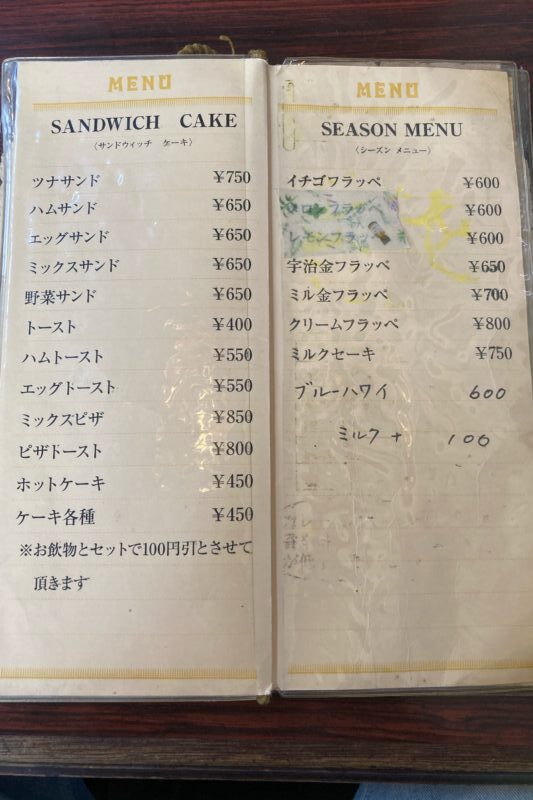 MENU
SANDWICH CAKE
(サンドウィッチ ケーキ)
ツナサンド ¥750
ハムサンド ¥650
エッグサンド ¥650
ミックスサンド ¥650
野菜サンド ¥650
トースト ¥400
ハムトースト ¥550
エッグトースト ¥550
ミックスピザ ¥850
ピザトースト ¥800
ホットケーキ ¥450
ケーキ各種 ¥450
※お飲物とセットで100円引とさせて
頂きます
MENU
SEASON MENU
(シーズン メニュー)
イチゴフラッペ ¥600
フラッペ ¥600
レモンフラッペ ¥600
宇治金フラッペ ¥650
ミル金フラッペ ¥700
クリームフラッペ ¥800
ミルクセーキ ¥750
ブルーハワイ 600
ミルク + 100